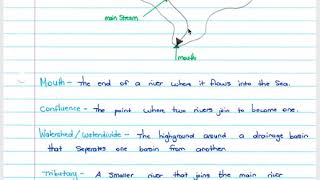 main Stream
mouth
Mouth - The end of a river where it flows into the Sea.
Confluence - The point where two rivers join to become one.
Watershed/waterdivide - The highground around a drainage basin
that Seperates one basin from another.
Tributary - A Smaller river that joins the main river